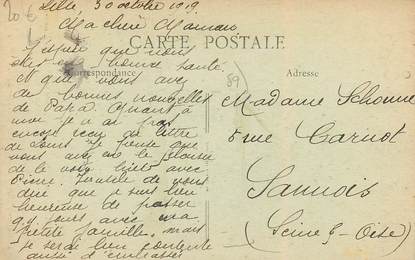 Lille, 30 octobre 1919.
Ma chère Maman,
CARTE POSTALE
Correspondance
Adresse
20€
89
J'espère que vous
êtes en bonne santé
et que vous avez
de bonnes nouvelles
de Papa. Quant à
moi je n'ai pas
encore reçu de lettre
de Louis. Je pense que
vous avez eu le plaisir
de le voir bientôt avec
de vous
dire que je suis bien
heureuse de passer
q.q. jours avec ma
petite famille. mais
je serai bien contente
aussi d'embrasser
Madame
5 rue Carnot
Sannois
(Seine & Oise)